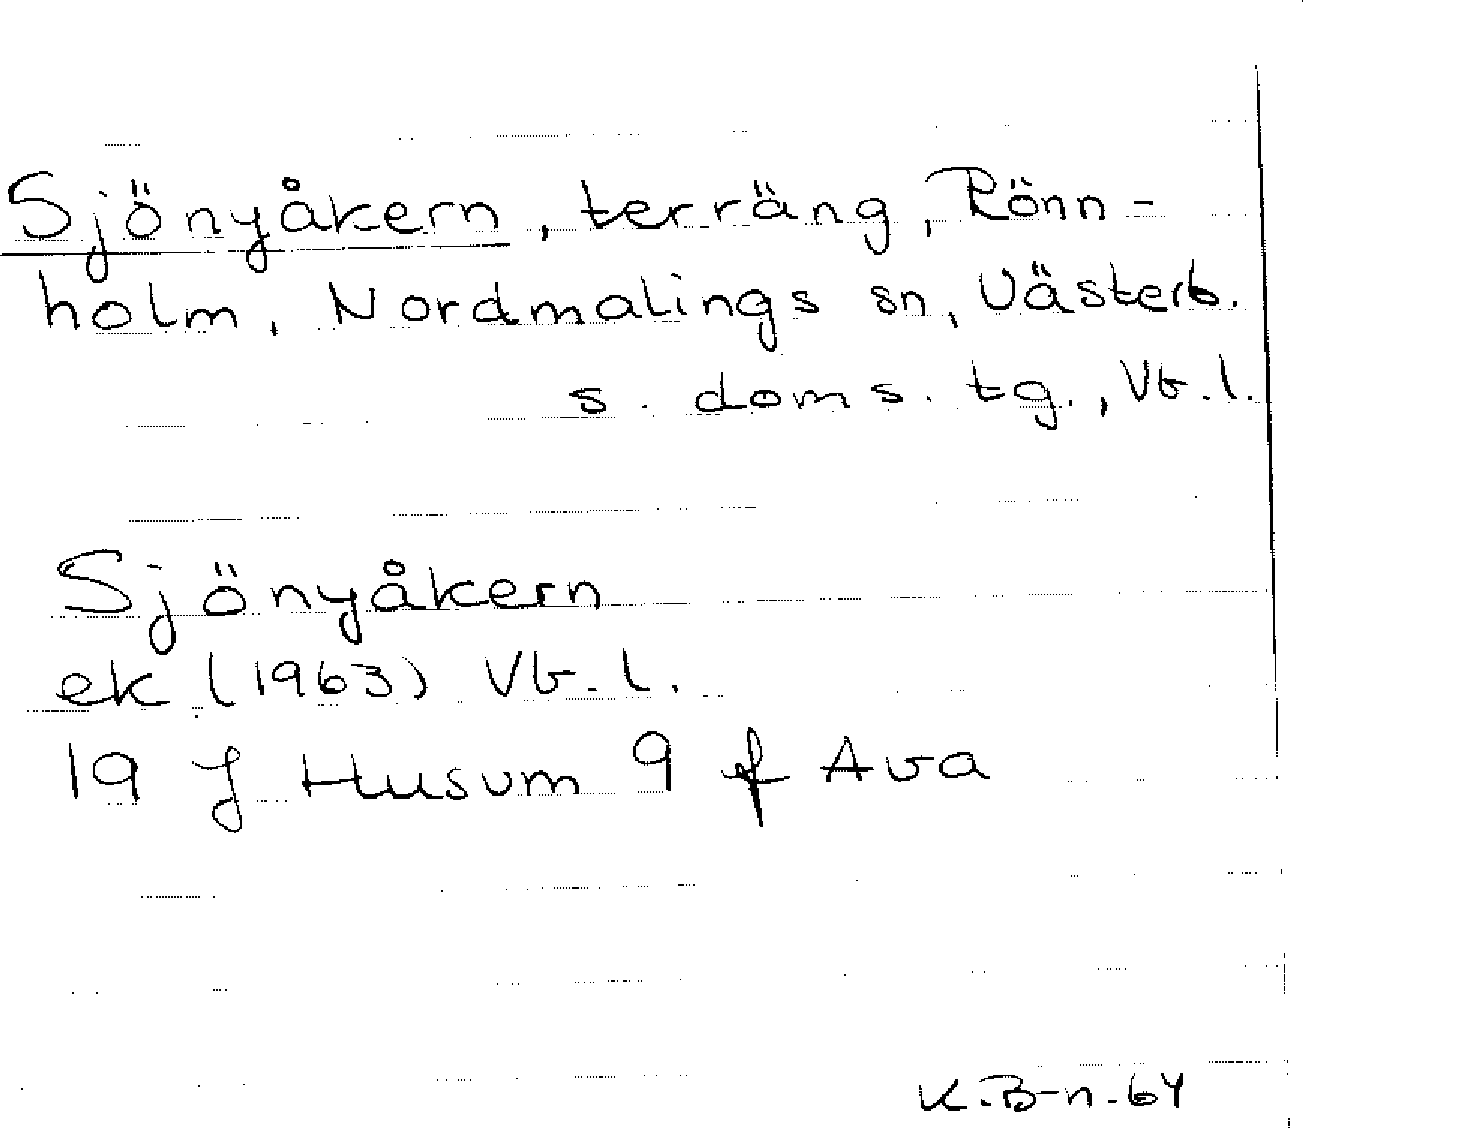 Sjönyåkern, terräng, Rönn-
holm, Nordmalings sn, Västerb.
s. doms. tg., Vb. l.
Sjönyåkern
ek (1963) Vb. l.
19 J Husum 9 f Ava
K.B-n. 64